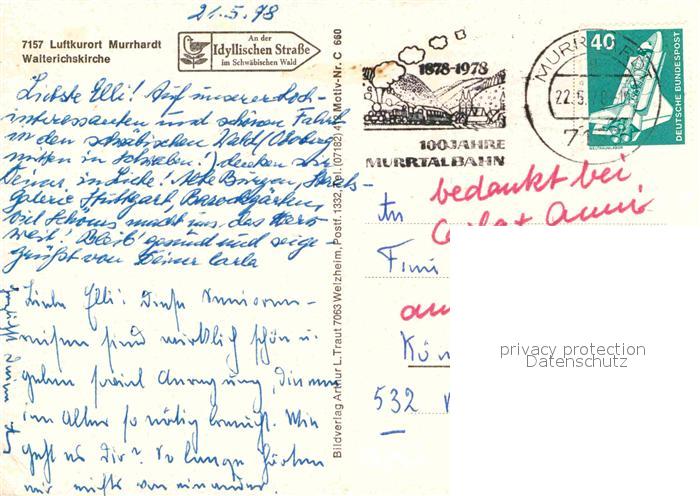 21.5.78
7157 Luftkurort Murrhardt
Walterichskirche
An der
Idyllischen Straße
im Schwäbischen Wald
Liebste Elli! Auf unserer hoch-
interessanten und schönen Fahrt
in den schwäbischen Wald
mitten in Schwaben!) denken wir
Deiner, in Liebe! Alte Burgen, Staats-
galerie Stuttgart Barockgärten,
viel Schönes macht uns das Herz
weit! Bleib gesund und sei
gegrüßt von Deiner Carla
Liebe Elli! Diese Senioren-
reisen sind wirklich schön u.
geben soviel Anregung, die man
im Alter so nötig braucht. Wie
geht es Dir? So lange hörten
wir nichts von einander.
Bildverlag Arthur L. Traut 7063 Welzheim, Postf. 1332, Tel. (07182) Motiv-Nr. C 660
1878-1978
100 JAHRE
MURRTALBAHN
MURRHARDT
22.5.78
71
40
DEUTSCHE BUNDESPOST
bedankt bei
Carla + Anni
An
532
privacy protection
Datenschutz